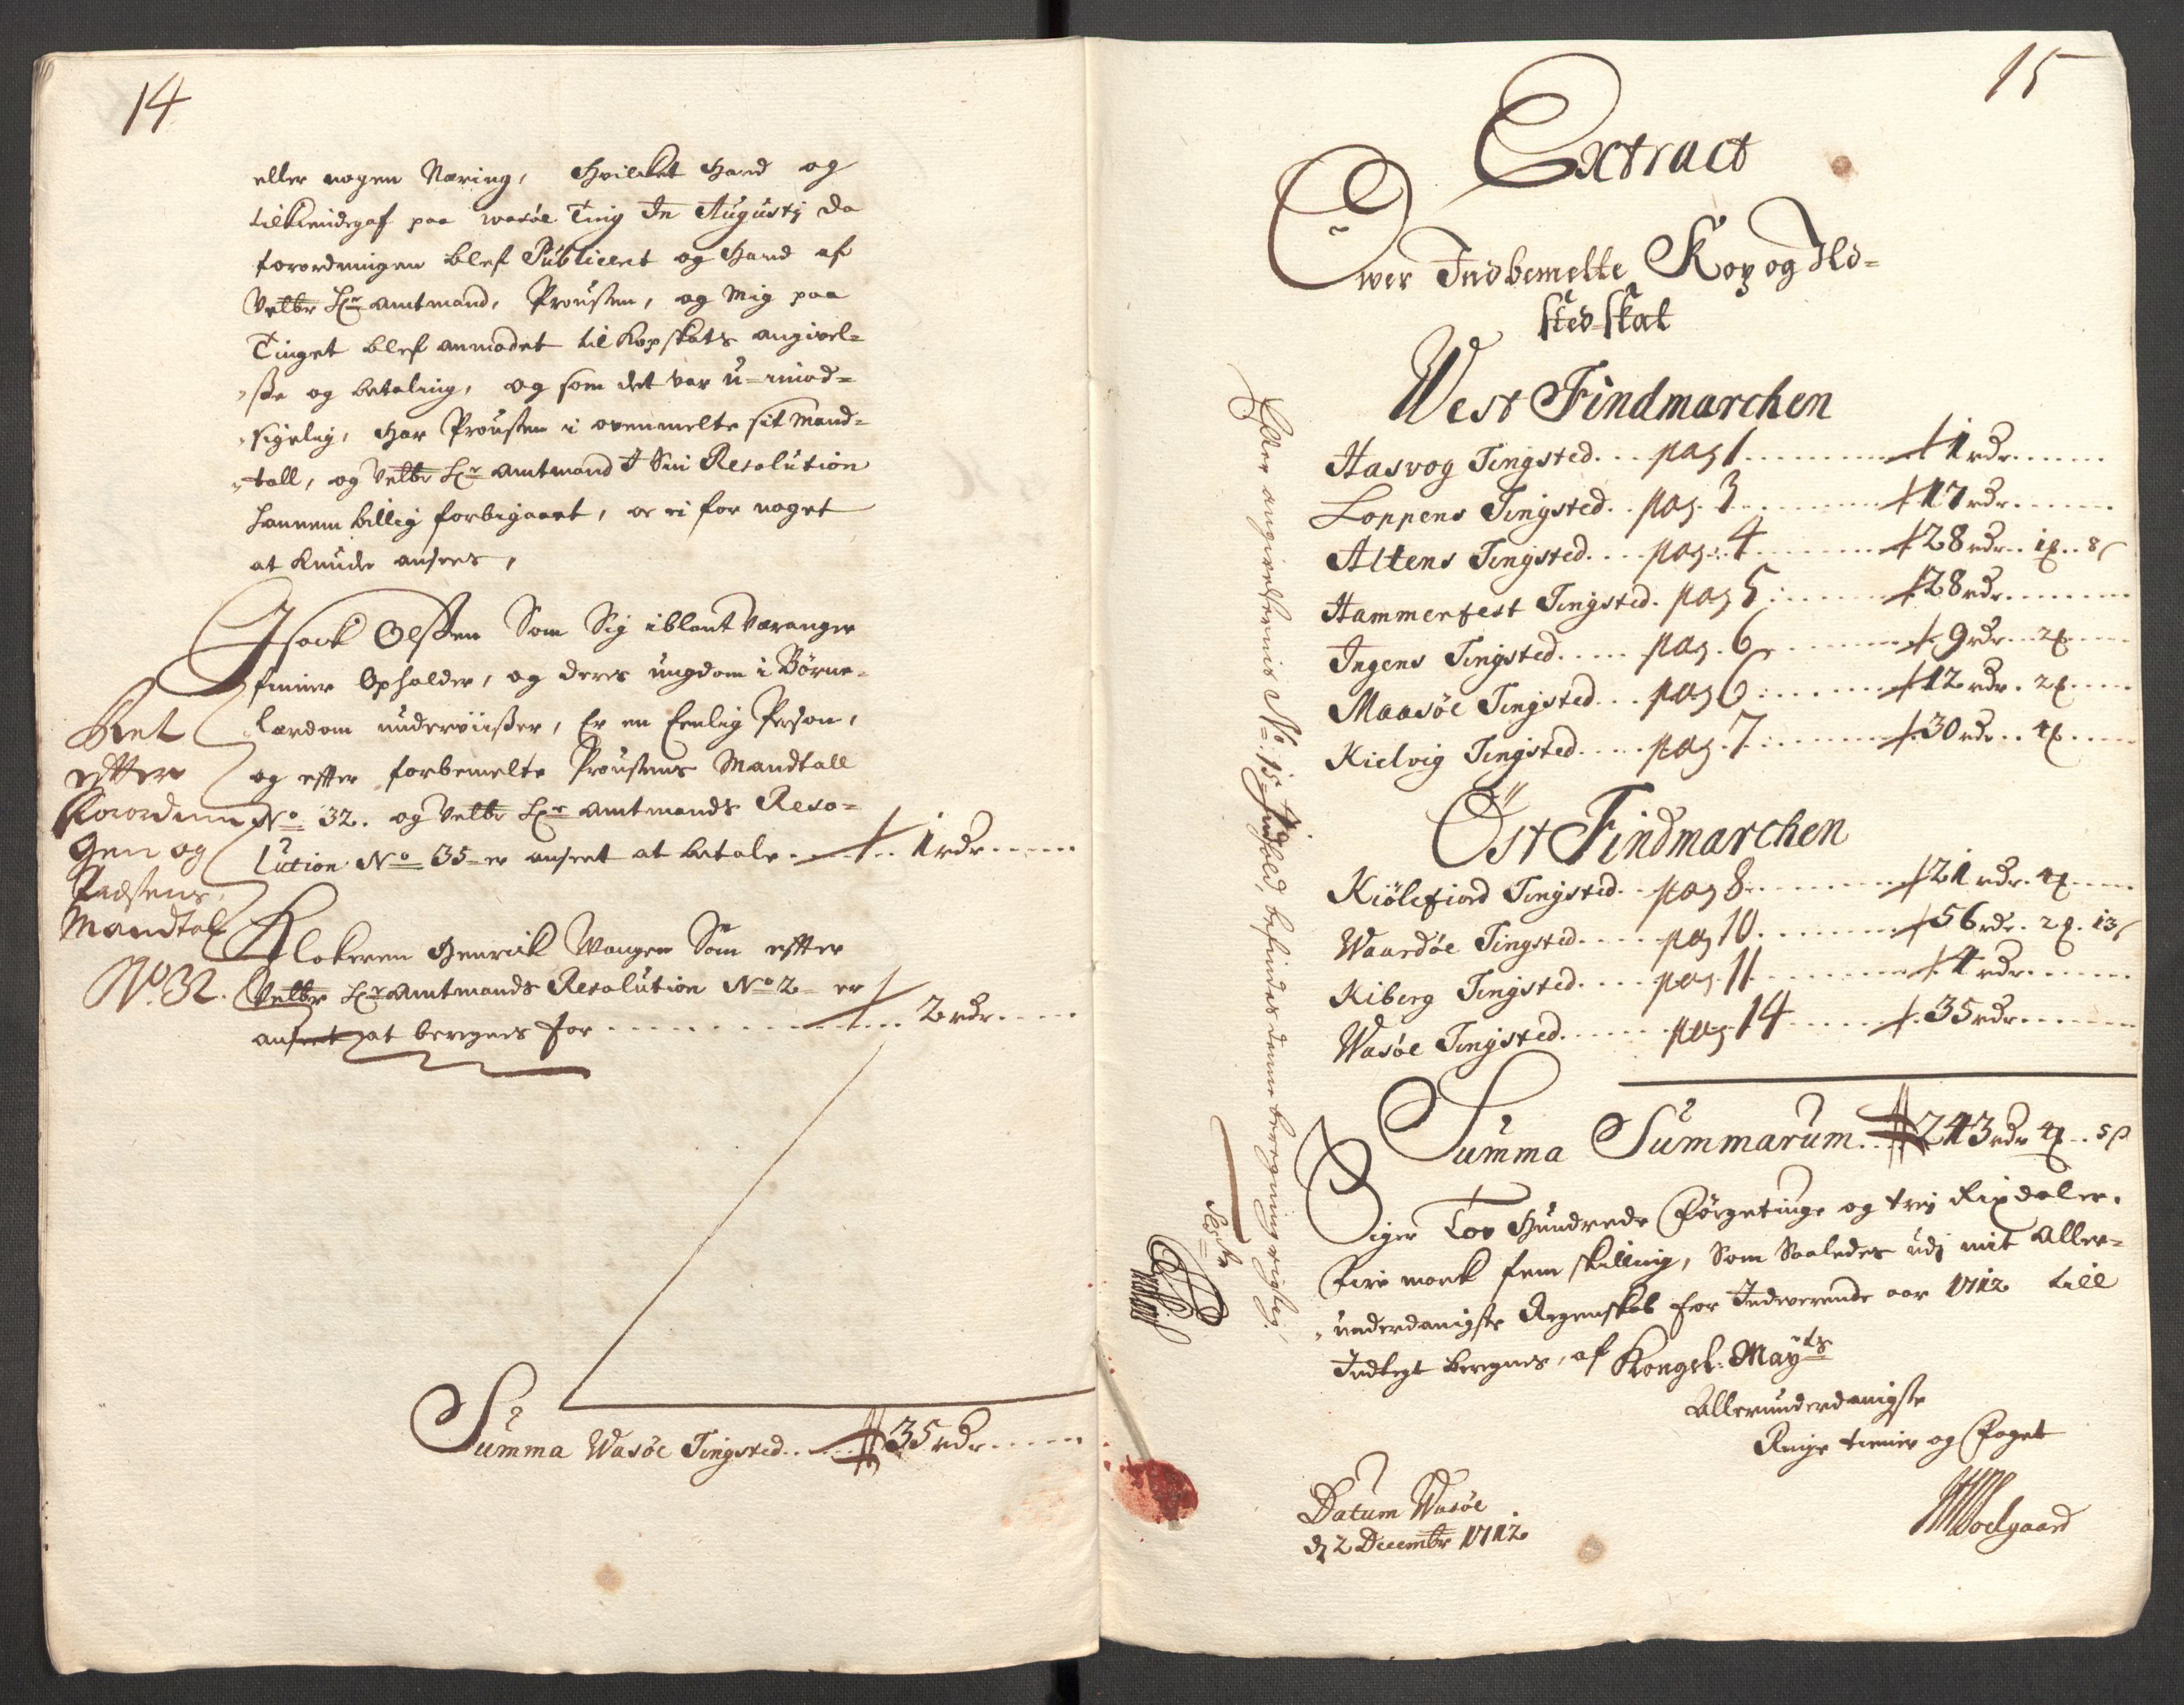 14
eller nogen Næring, Hvilcket Hand og
tilkiendegaf paa Wasöe Ting In Augustj da
forordningen blef Publicert og Hand af
Velbr Hr Amtmand, Prousten, og Mig paa
Tinget blef anmodet til Kopskats angivel-
se og betaling, og som det var u-
har Prousten i ovenmelte sit Mand-
tall, og Velbr Hr Amtmand I Sin Resolution
hannem billig forbigaaet, og ei for noget
at Kunde ansees,
Isack Olssen Som Sig iblant Waranger
finner Opholder, og deres ungdom i Börne-
lærdom underviisser, Er en Eenlig Person,
og effter forbemelte Proustens Mandtall
No 32. og Velbr Hr Amtmands Reso-
lution No 35 er anseet at betale 1 rdr
Ret
effter
Forordnin
gen og
Mandtal
No. 32.
Klokeren Henrick Wanger Som effter
Velbr Hr Amtmands Resolution No 2 er
anseet at beregnes for 2 rdr
Summa Wasöe Tingsted 35 rdr
15
Extract
Over Indbemelte Kop og Ild-
sted-skat
West Findmarchen
Hasvog Tingsted pag 1 1 rdr
Loppens Tingsted pag. 3 17 rdr
Altens Tingsted pag. 4 28 rdr 1 8
Hammerfest Tingsted. pag 5 28 rdr
Ingens Tingsted pag. 6 9 rdr 2
Maasöe Tingsted pag 6 12 rdr. 2
Kielvig Tingsted pag. 7 30 rdr 4
Öst Findmarchen
Kiölefiord Tingsted pag 8 21 rdr. 4
Waardöe Tingsted pag 10 56 rdr. 2. 13
Kiberg Tingsted pag. 11 4 rdr
Wasöe Tingsted pag. 14 35 rdr
Summa Summarum 243 rdr 4 5 ß
Siger Toe Hundrede Förgetiuge og trej Rixdaler,
Fire mark fem skilling, Som Saaledes udj mit Aller-
underdanigste Regenskab for Indeverende aar 1712 till
Indtegt beregnes, af Kongel: Mayts
Allerunderdanigste
Ringe tienner og Foget
Datum Wasöe
dj 2 Decembr 1712
Efter angivelsernis No: 15 Indhold, befindes denne beregning rigtig,